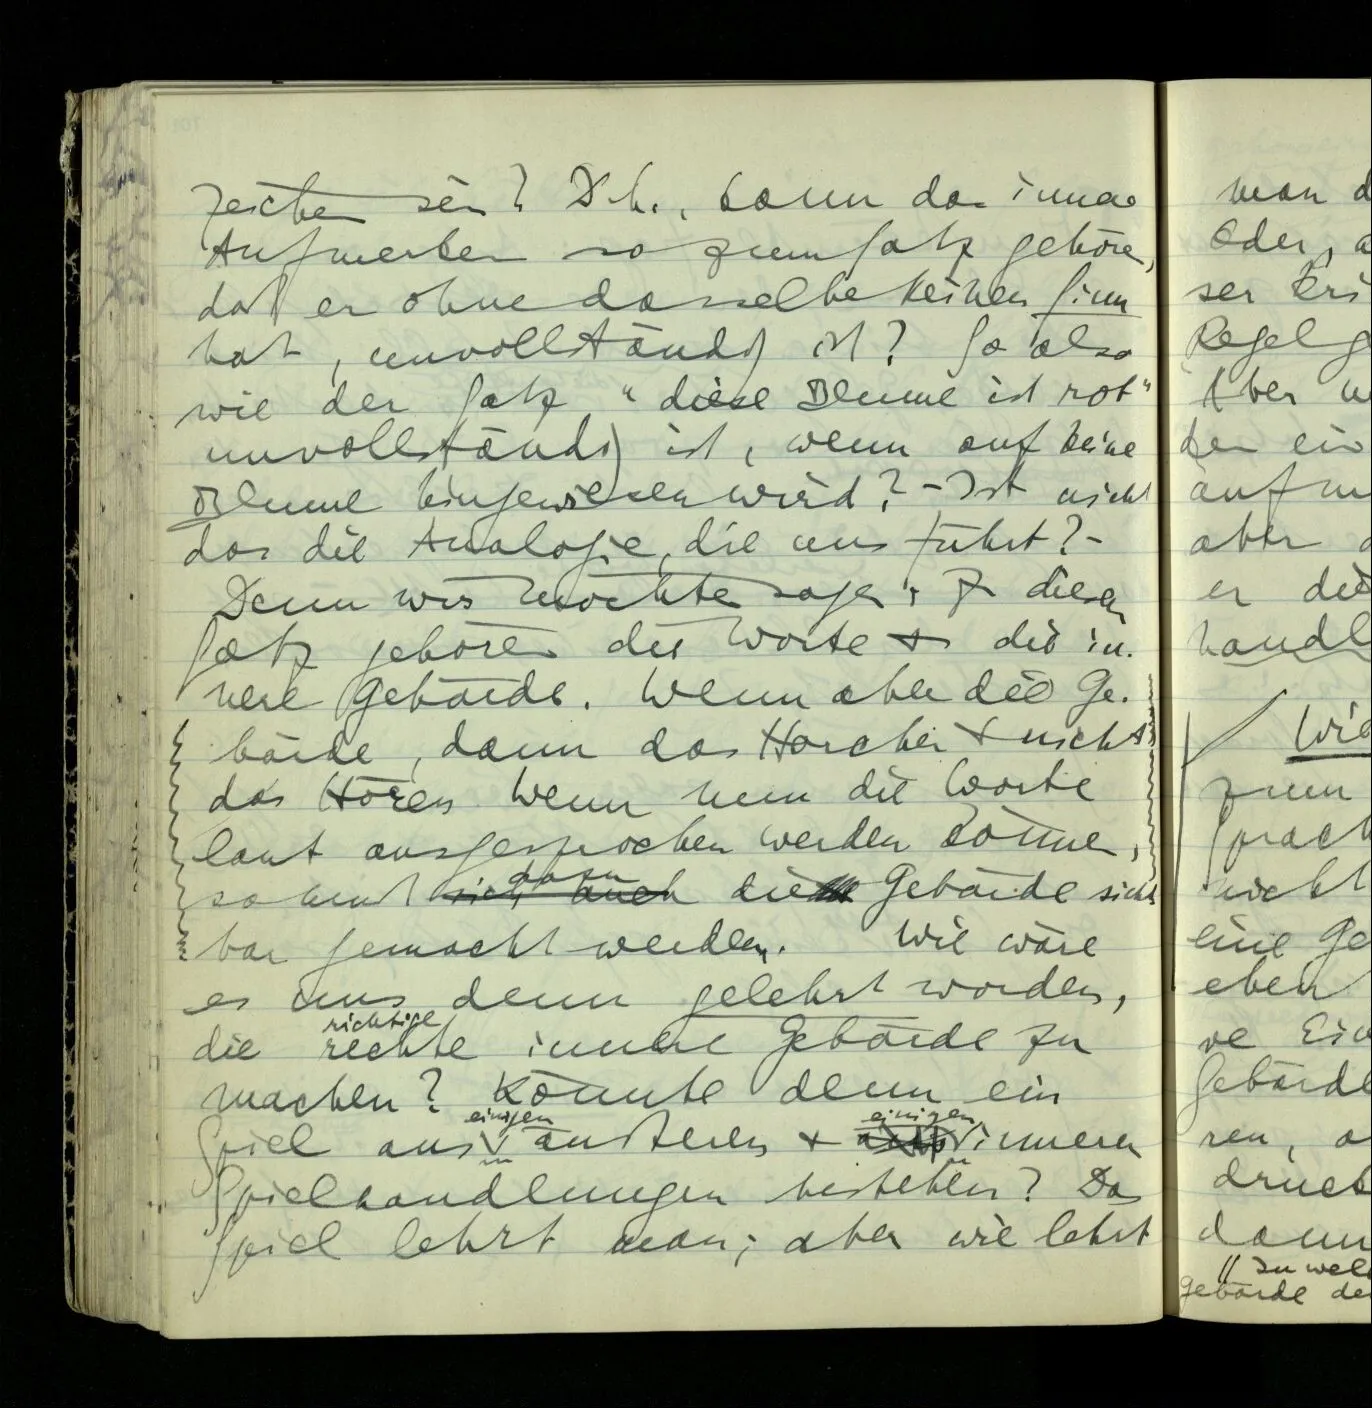 zeichen sein? D.h., kann das innere
Aufmerken so zum Satz gehören,
daß er ohne dasselbe keinen Sinn
hat, unvollständig ist? So also
wie der Satz “diese Blume ist rot”
unvollständig ist, wenn auf keine
Blume hingewiesen wird? – Ist nicht
das die Analogie, die uns führt? –
Denn wir möchten sagen: Zu diesem
Satz gehören die Worte & die in-
nere Gebärde. Wenn aber die Ge-
bärde, dann das Horchen & nicht
das Hören. Wenn nun die Worte
laut ausgesprochen werden können,
dann
so muß sich auch die Gebärde sicht-
bar gemacht werden. Wie wäre
es uns denn gelehrt worden,
richtige
die rechte innere Gebärde zu
machen? Könnte denn ein
einigen einigen
Spiel aus äußeren & inneren
Spielhandlungen bestehen? Das
Spiel lehrt man; aber wie lehrt
man d
Oder, a
ser Eri
Regel g
Aber w
der ein
aufm
aber
er die
handl
Wie
zum
Sprach
nicht
eine Ge
eben
ve Ein
Gebärde
ren, a
druck
dann
zu wel
Gebärde der